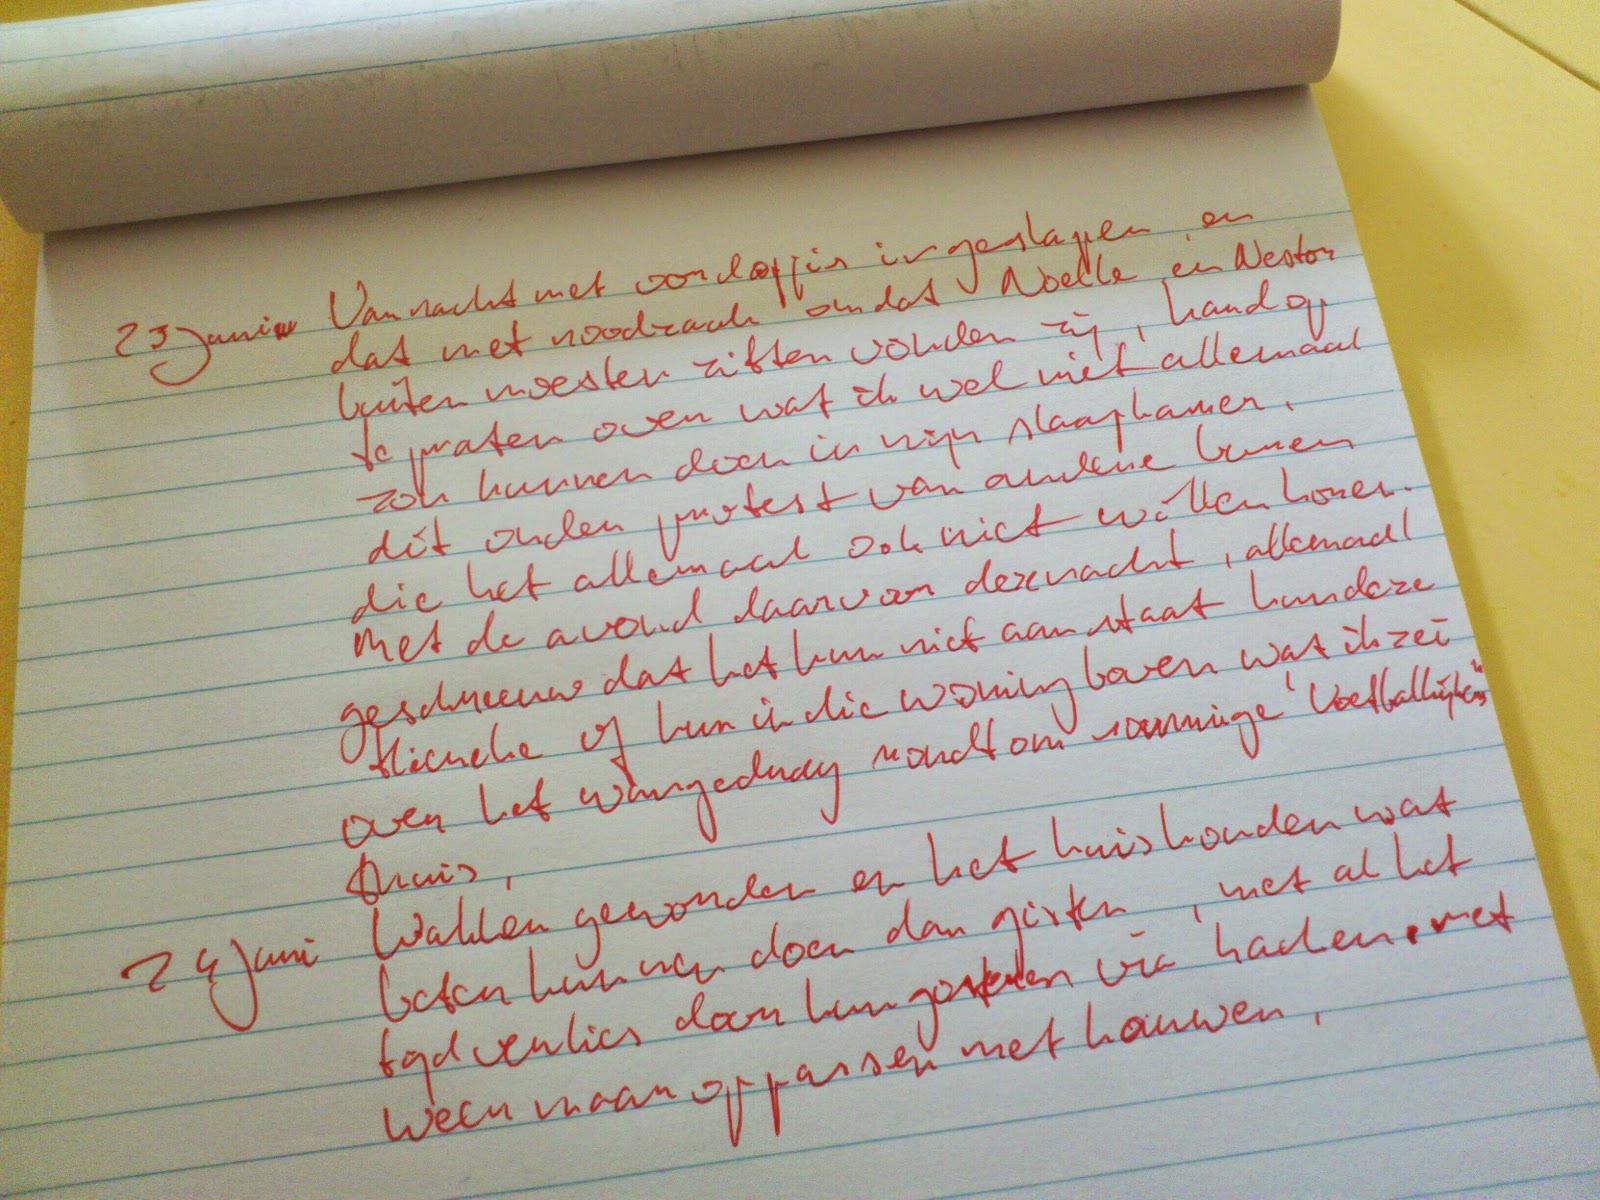 23 Juni Vannacht met oordoppjes in geslapen en
dat met noodzaak omdat Noelle en Nestor
buiten moesten zitten vonden zij, hand op
te praten over wat ik wel niet allemaal
zou kunnen doen in mijn slaapkamer.
dit onder protest van andere buren
die het allemaal ook niet willen horen.
Met de avond daarvoor dezenacht, allemaal
geschreeuw dat het hun niet aanstaat hun deze
of hun in die woning boven wat ik zei
over het wangedrag rondtom sommige "Voetballetjes"
thuis,
24 Juni Wakker geworden en het huishouden wat
beter kunnen doen dan gisten, met al het
tydverlies door hun gisteren via haden, met
weer maar oppassen met houwen,